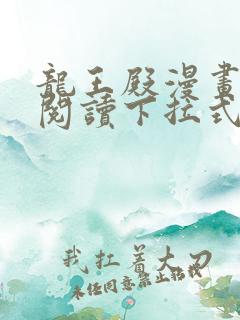 龍王殿漫畫
閱讀下拉式
我扛着大刀
未经同意禁止转载